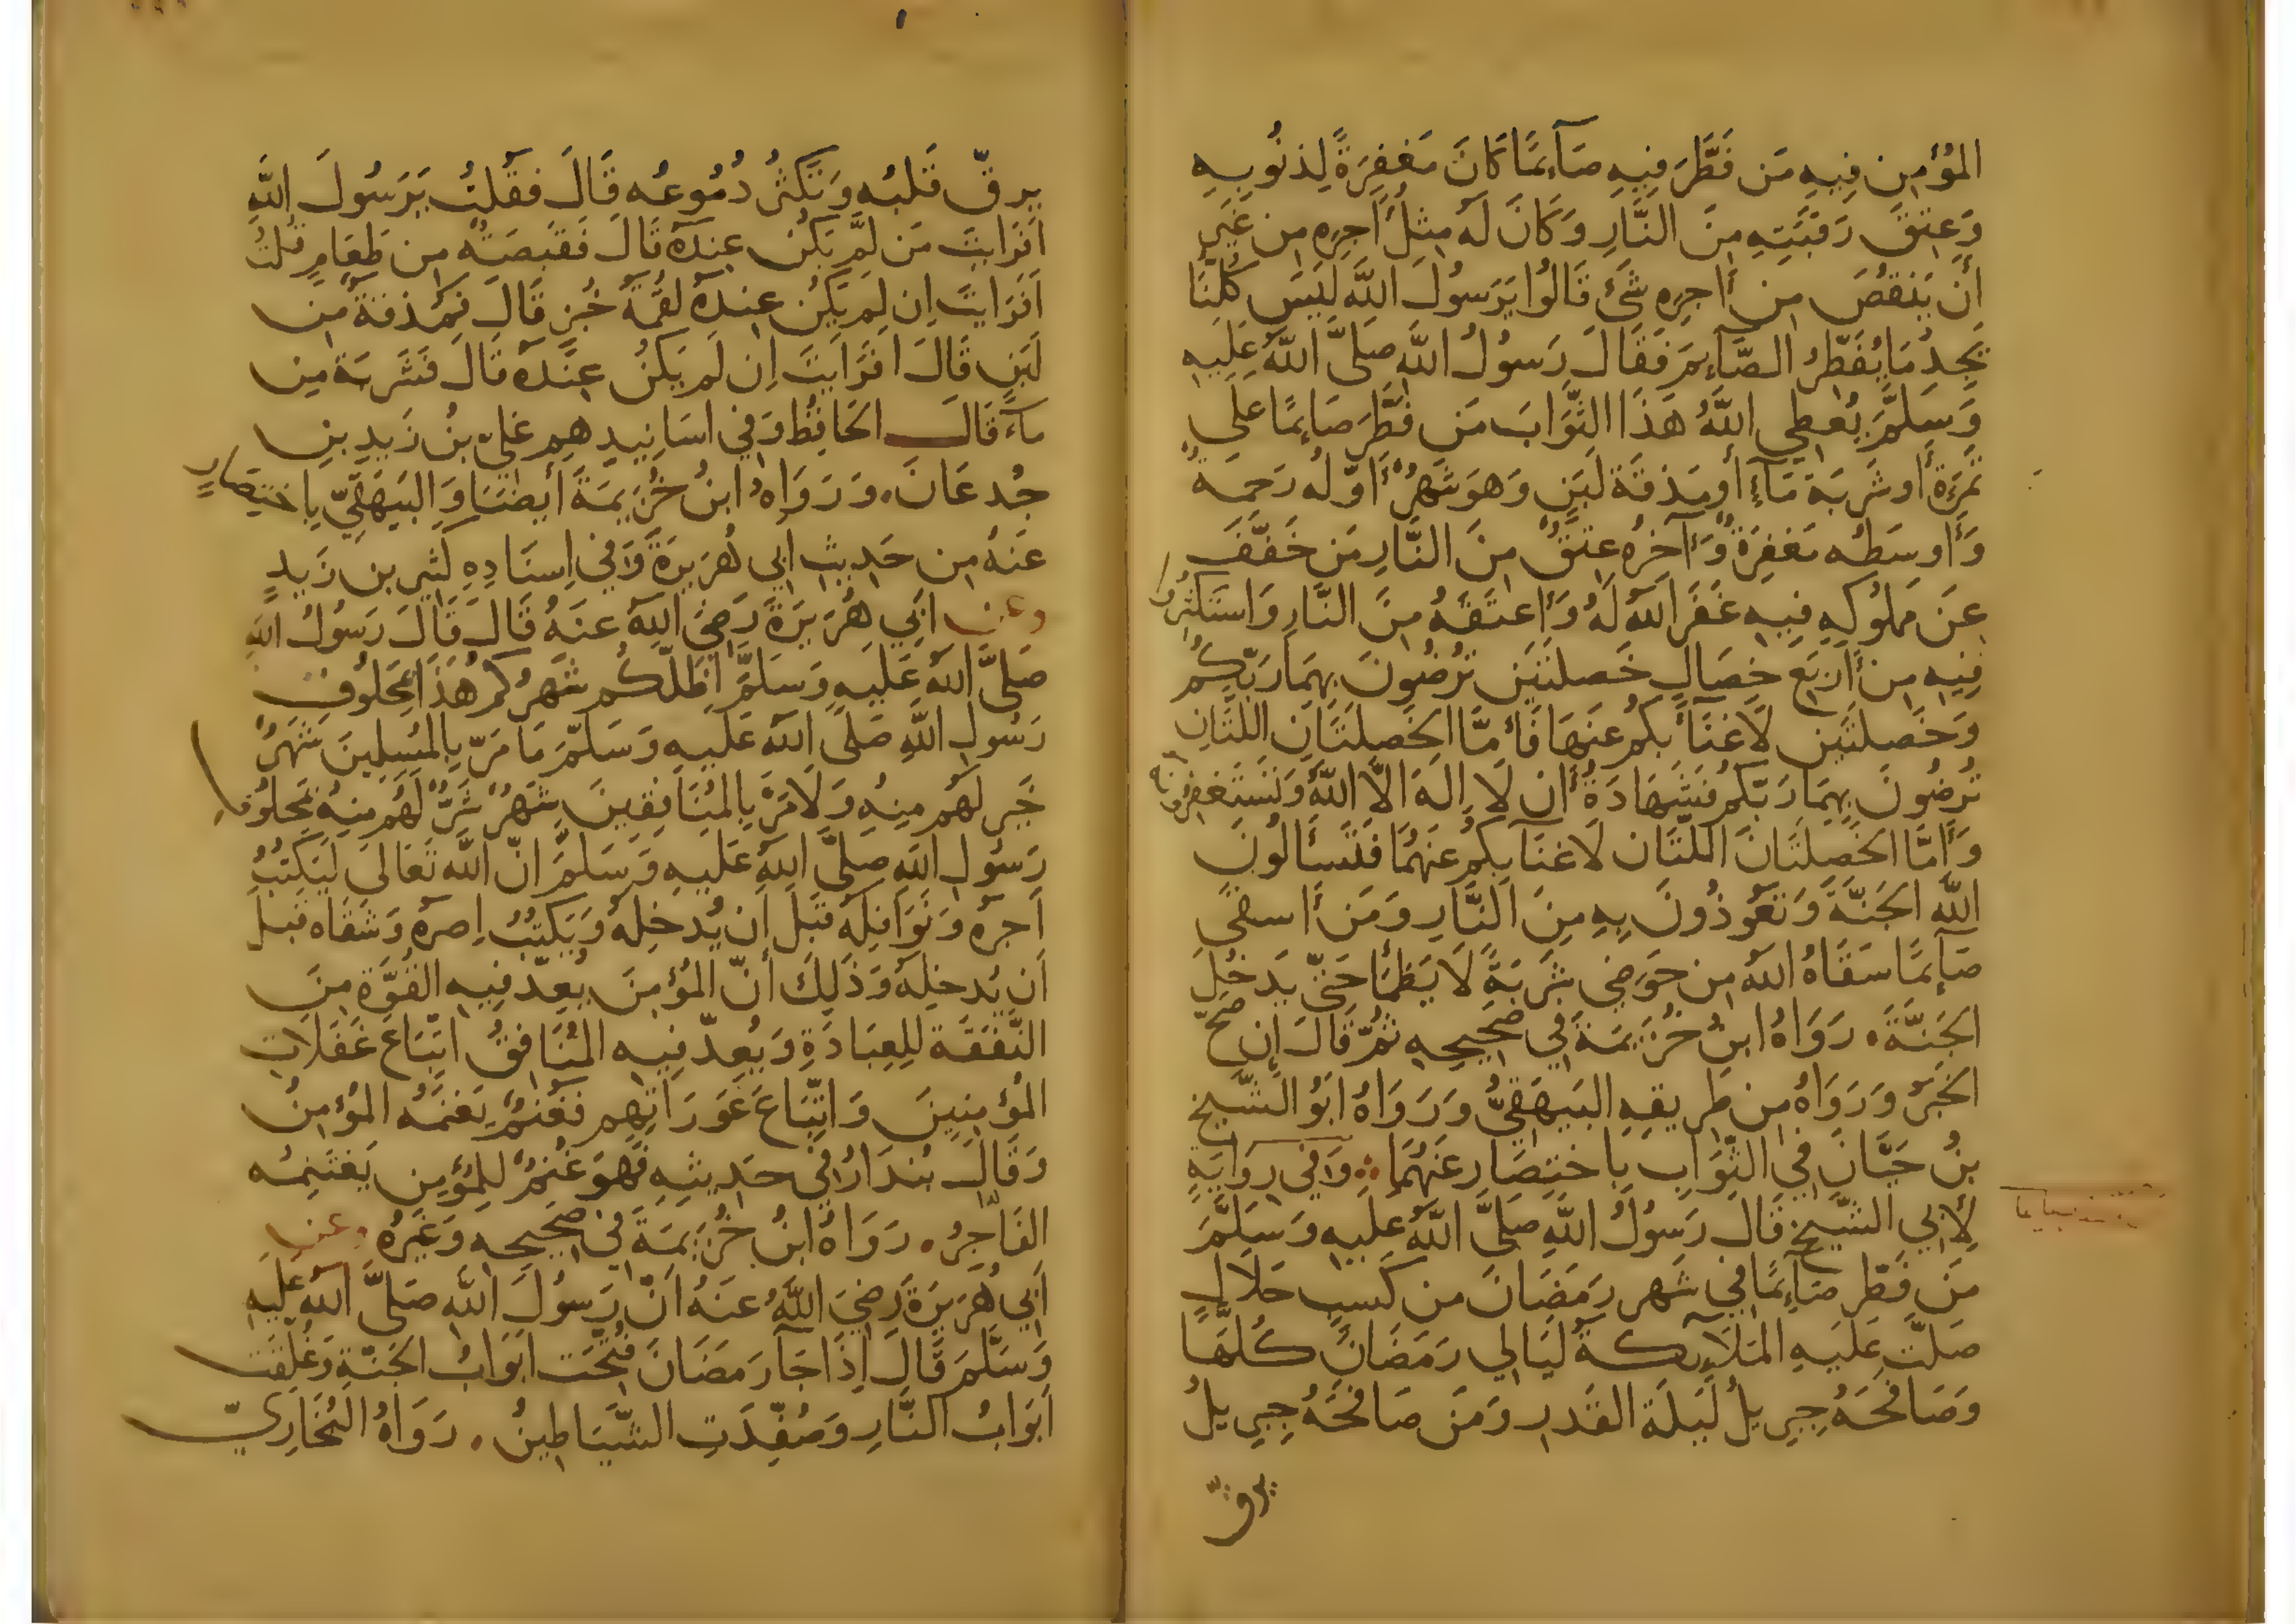 المُؤمِنِ فِيهِ مَن فَطَّرَ فِيهِ صَآءِمًا كَانَ مَغفِرَةً لِذنُوبِهِ
وَعِتقَ رَقبَتِهِ مِنَ النَّارِ وَكَانَ لَه مِثلُ أَجرِهِ مِن غَيرِ
أَن يَنقُصَ مِن أَجرِهِ شَئ قَالُوا يَرَسُولَ اللَّه لَيسَ كُلنَا
يَجِدُ مَا يُفَطِّرُ الصَّآءِمَ فَقَالَ رَسُولُ اللَّه صَلىَّ اللَّهُ عَلَيهِ
وَسَلمَّ يُعطِي اللَّهُ هَذَا الثَّوَابَ مَن فَطَّرَ صَاءِمًا عَلَى
تَمرَةٍ أَو شَربَة مَآءٍ أَو مَذقَة لَبَنٍ وَهوَ شَهرٌ أَوّلُه رَحمَة
وَأَوسَطُه مَغفِرَةٌ وَءَاخِرُه عِتقٌ مِنَ النَّارِ مَن خَفَّفَ
عَن مَملُوكِهِ فِيهِ غَفَرَ اللَّه لَهُ وَأَعتَقَهُ مِنَ النَّارِ وَاستَكثِرُوا
فِيهِ مِن أَربَع خِصَالٍ خَصلتَيَن تُرضُونَ بِهِمَا رَبّكُم
وَخَصلتَين لَا غنَآءَ بِكُم عَنهَا فَأَمَّا الخَصلَتَانِ اللَّتَانِ
تُرضُونَ بِهِمَا رَبّكُم فَشَهَادَةُ أَن لَا إِلَهَ الاَّ اللَّهُ وَتَستَغفِرُونَه
وَأَمَّا الخَصلَتَانَ اللَّتَان لَا غنَآ بِكُم عَنهُمَا فَتَسأَلُونَ
اللَّه الجَنَّةَ وَتَعُوذُونَ بِهِ مِنَ النَّارِ وَمَن أَسقَى
صَآءِمًا سَقَاهُ اللَّه مِن حَوضِي شَربَةً لَا يَظمَأُ حَتّى يَدخُلَ
الجَنَّةَ. رَوَاهُ ابنُ خُزَيمَةَ فِي صَحِيحِهِ ثُمَّ قَالَ إِن صَحّ
الخَبَرُ وَرَوَاهُ مِن طَرِيقِهِ البَيهَقِيُّ وَرَوَاهُ ابُو الشَّيخ
بنُ حَيَّانَ فِي الثَّوَابِ بِاختِصَارِ عَنهُمَا وَفِي رِوَايَةٍ
لأَبِي الشَّيخ قَالَ رَسُولُ اللَّهِ صَلىَّ اللَّهُ عَلَيهِ وَسَلمَّ
مَن فَطّر صَآءِمًا فِي شَهر رَمَضَانَ مِن كَسبٍ حَلَالٍ
صَلَّت عَلَيهِ المَلَآءِكة لَيَالِي رَمَضَانَ كُلهَا
وَصَافَحَهُ جِبرِيلُ لَيلَة القَدر وَمَن صَافَحَهُ جِبرِيلُ
يرقّ
يرقّ قَلبُه وَتَكثُرُ دُمُوعُه قَالَ فقُلتُ يَرَسُولَ اللَّهِ
افَرَايتَ مَن لَم يَكُن عِندَه قَالَ فَقَبصَةٌ مِن طَعَامٍ قُلتُ
افَرَايتَ اِن لَم يَكُن عِندَه لقُمَة خُبزٍ قَالَ فَمَذقَةٌ مِن
لَبَنٍ قَالَ افَرَايتَ اِن لَم يَكُن عِندَه قَالَ فَشَربَة مِن
مَآءٍ قَالَ الحَافِظُ وَفِي اسَانِيدِهِم عَليّ بنُ زَيدِ بنِ
جُدعَانَ. وَرَوَاهُ ابنُ خُزَيمَةَ أَيضًا وَالبَيهَقِيّ بِاختِصَارٍ
عَنهُ مِن حَدِيثِ ابِي هُرَيرَةَ وَفِي اِسنَادِهِ كَثِيرِ بن زَيدٍ
وعن ابِي هُرَيرَةَ رَضِيَ اللَّه عَنهُ قَالَ قَالَ رَسُولُ اللَّهِ
صَلىَّ اللَّه عَلَيهِ وَسَلمَّ اظَلّكُم شَهرُكُم هَذَا بِمَحلُوفِ
رَسُولِ اللَّهِ صَلىَّ اللَّه عَلَيهِ وَسَلمَّ مَا مَرّ بِالمُسلِمِينَ شَهرٌ
خَيرٌ لَهُم مِنهُ وَلَا مَرَّ بِالمُنَافِقِينَ شَهرٌ شَرٌّ لَهُم مِنهُ بِمَحلُوفِ
رَسُولِ اللَّهِ صَلىَّ اللَّهُ عَلَيهِ وَسَلمَّ انّ اللَّه تَعَالَى لَيَكتُبُ
اَجرَه وَنَوَافِلَه قَبلَ اَن يُدخِلَهُ وَيَكتُبُ اِصرَه وَشَقَاه قَبل
اَن يُدخِلَه وَذَلِكَ أنّ المُؤمِنَ يُعِدّ فِيهِ القُوَّةَ مِنَ
النَّفَقَة لِلعِبَادَةِ وَيُعِدّ فِيهِ المُنَافِقُ اتّبَاعَ غَفَلَاتِ
المُؤمِنِينَ وَاتّبَاعَ عَورَاتِهِم فَغُنمٌ يَغنَمُه المُؤمِنُ
وَقَالَ بُندَارٌ فِي حَدِيثِهِ فَهوَ غُنمٌ لِلمُؤمِنِ يَغتَنِمُه
الفَاجِرُ. رَوَاهُ ابنُ خُزَيمَةَ فِي صَحِيحِهِ وَغَيرُه وعن
أَبِي هُرَيرَةَ رَضِيَ اللَّهُ عَنهُ انّ رَسُولَ اللَّه صَلىَّ اللَّه عَلَيهِ
وَسَلَّمَ قَالَ إِذَا جَآ رَمَضَانَ فُتّحَت ابَوابُ الجَنّةِ وَغُلّقَت
ابَوَابُ النَّارِ وَصُفِّدَتِ الشَّيَاطِينُ. رَوَاهُ البُخَارِيّ